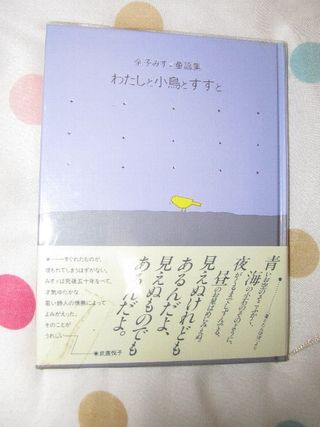 金子みすゞ童謡集
わたしと小鳥とすずと
青いお空のそこふかく、
海の小石のそのように、
夜がくるまでしずんでる、
昼のお星はめにみえぬ。
見えぬけれども
あるんだよ、
見えぬものでも
あるんだよ。
●――すぐれたものが、
埋もれてしまうはずがない。
みすゞは死後五十年をへて、
才気ゆたかな
若い詩人の情熱によって
よみがえった。
そのことが
うれしい――●武鹿悦子